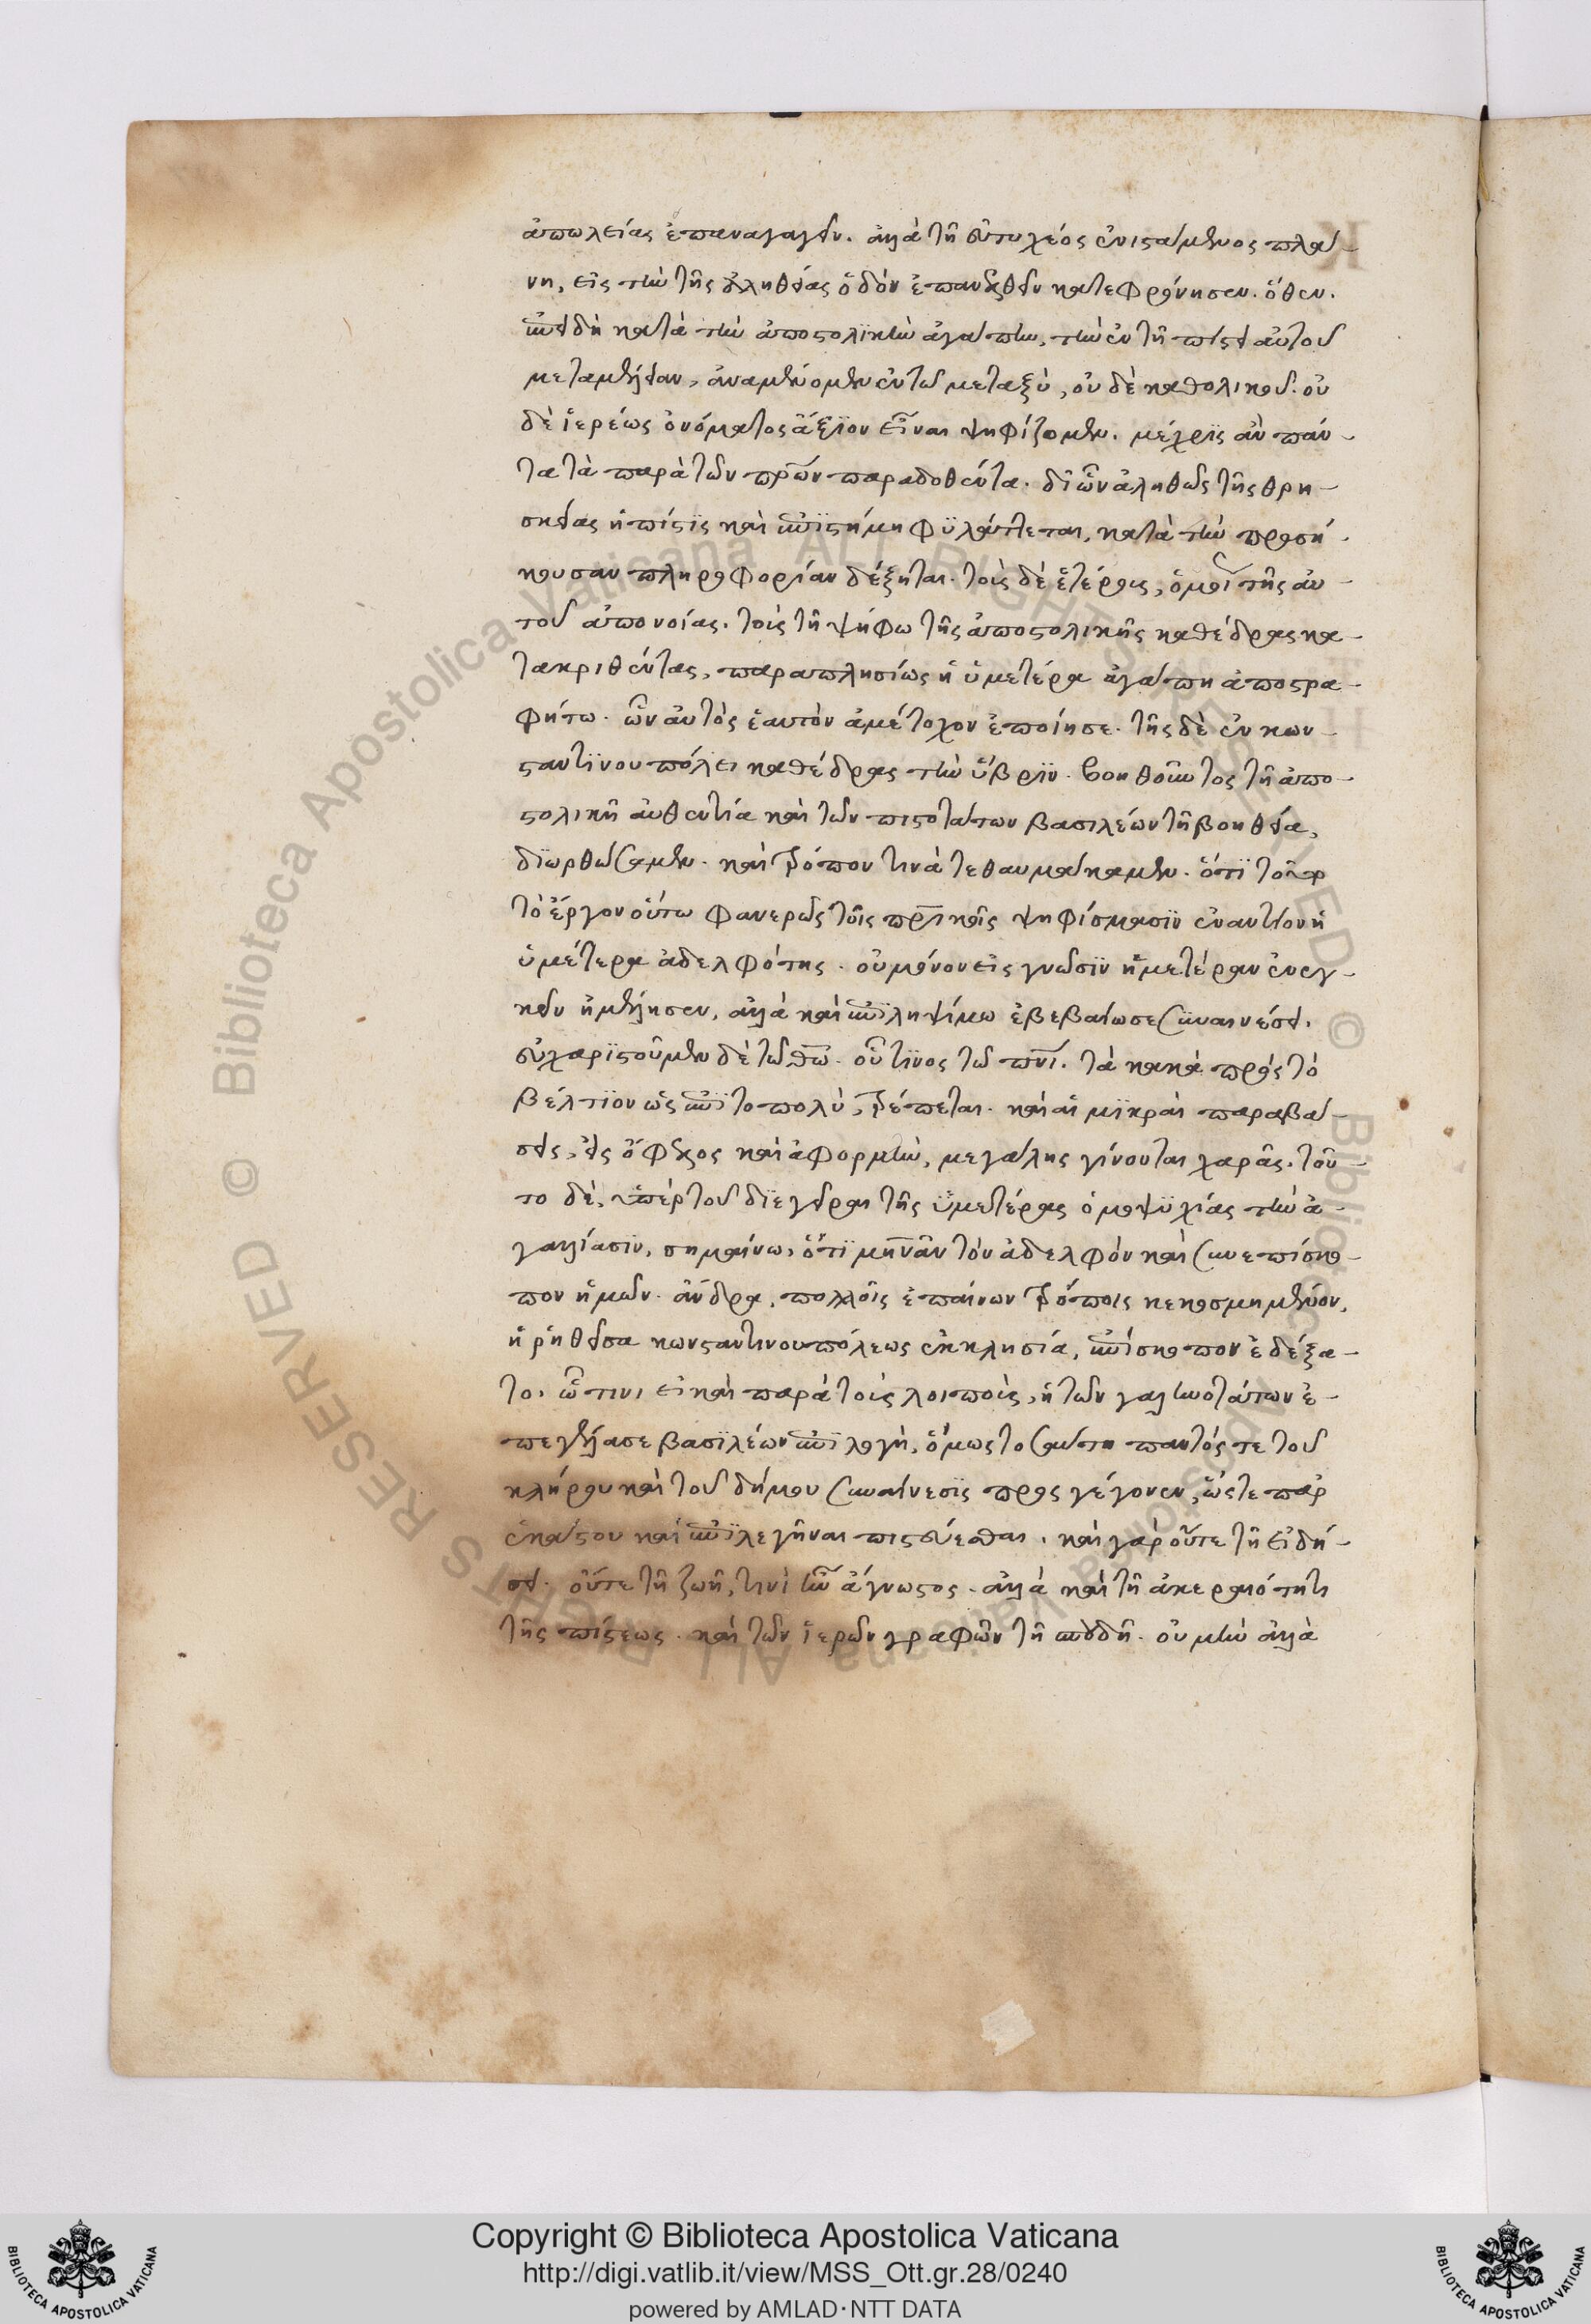 ἀπωλείας ἐπαναγαγεῖν. ἀλλὰ τῇ εὐτυχέος ἐνισταμένος πλά-
νῃ, εἰς τὴν τῆς ἀληθείας ὁδὸν ἐπανελθεῖν κατεφρόνησεν. ὅθεν.
ἐπειδὴ κατὰ τὴν ἀποστολϊκὴν ἀγάπην, τὴν ἐν τῇ πίστει αὐτοῦ
μεταμέλειαν, ἀναμένομεν ἐν τῶ μεταξὺ, οὐ δὲ καθολικοῦ. οὐ
δὲ ἱερέως ὀνόματος ἄξϊον εἶναι ψηφίζομεν. μέχρϊς ἂν πάν-
τα τὰ παρὰ τῶν πρων παραδοθέντα. δι ὧν ἀληθῶς τῆς θρη-
σκείας ἡ πίστϊς καὶ ἐπϊστήμη φϋλάττεται, κατὰ τὴν προσή-
κουσαν πληροφορίαν δέξηται. τοὺς δὲ ἑτέρους, ὁμοῦ τῆς αὐ-
τοῦ ἀπονοίας. τοὺς τῇ ψήφω τῆς ἀποστολικῆς καθέδρας κα-
τακριθέντας, παραπλησίως ἡ ὑμετέρα ἀγάπη ἀποστρα-
φήτω. ὧν αὐτὸς ἑαυτὸν ἀμέτοχον ἐποίησε. τῆς δὲ ἐν κων-
σταντϊνουπόλει καθέδρας τὴν ὕβρϊν. βοηθοῦντος τῇ ἀπο-
στολικῇ αὐθεντία καὶ τῶν πιστοτάτων βασιλέων τῇ βοηθεία,
δϊωρθώσαμεν. καὶ τρόπον τινὰ τεθαυμάκαμεν. ὅτϊ
τὸ ἔργον οὕτω φανερῶς τοῖς πρικοῖς ψηφίσμασϊν ἐναντίον ἡ
ὑμέτερα ἀδελφότης. οὐ μόνον εἰς γνῶσϊν ἡμετέραν ἐνεγ-
κεῖν ἠμέλησεν, ἀλλὰ καὶ ἐπϊληψίμω ἐβεβαίωσε συναινέσει.
εὐχαρϊστοῦμεν δὲ τῶ θω. οὗ τϊνος τῶ πνι. τὰ κακὰ πρὸς τὸ
βέλτϊον ὡς ἐπϊ τοπολὺ, τρέπεται. καὶ αἱ μϊκραὶ παραβά-
σεις, εἰς ὄφελος καὶ ἀφορμὴν, μεγάλης γίνονται χαρᾶς. τοῦ-
το δὲ, ὑπὲρ τοῦ διεγεῖραι τῆς ὑμετέρας ὁμοψϋχίας τὴν ἀ-
γαλλίασϊν, σημαίνω, ὅτϊ μηνᾶν τὸν ἀδελφὸν καὶ συνεπίσκο-
πον ἡμῶν. ἄνδρα, πολλοῖς ἐπαίνων τρόποις κεκοσμημένον,
ἡ ῥηθεῖσα κωνσταντινουπόλεως ἐκκλησία, ἐπίσκοπον ἐδέξα-
το. ὧ τινι εἰ καὶ παρὰ τοὺς λοιποὺς, ἡ τῶν γαληνοτάτων ἐ-
πεγέλασε βασϊλέων ἐπϊλογὴ, ὅμως τοσαύτη παντός τε τοῦ
κλήρου καὶ τοῦ δήμου συναίνεσϊς προς γέγονεν, ὥστε παρ
ἑκάστου καὶ ἐπϊλεγῆναι πιστεύεσθαι. καὶ γὰρ οὔτε τῇ εἰδή-
σει. οὔτε τῇ ζωῇ, τινὶ ἦν ἄγνωστος. ἀλλὰ καὶ τῇ ἀκεραιότητι
τῆς πίστεως. καὶ τῶν ἱερῶν γραφῶν τῇ σπουδῇ. οὐ μὴν ἀλλὰ
Copyright © Biblioteca Apostolica Vaticana
http://digi.vatlib.it/view/MSS_Ott.gr.28/0240
powered by AMLAD·NTT DATA
BIBLIOTECA APOSTOLICA VATICANA
BIBLIOTECA APOSTOLICA VATICANA